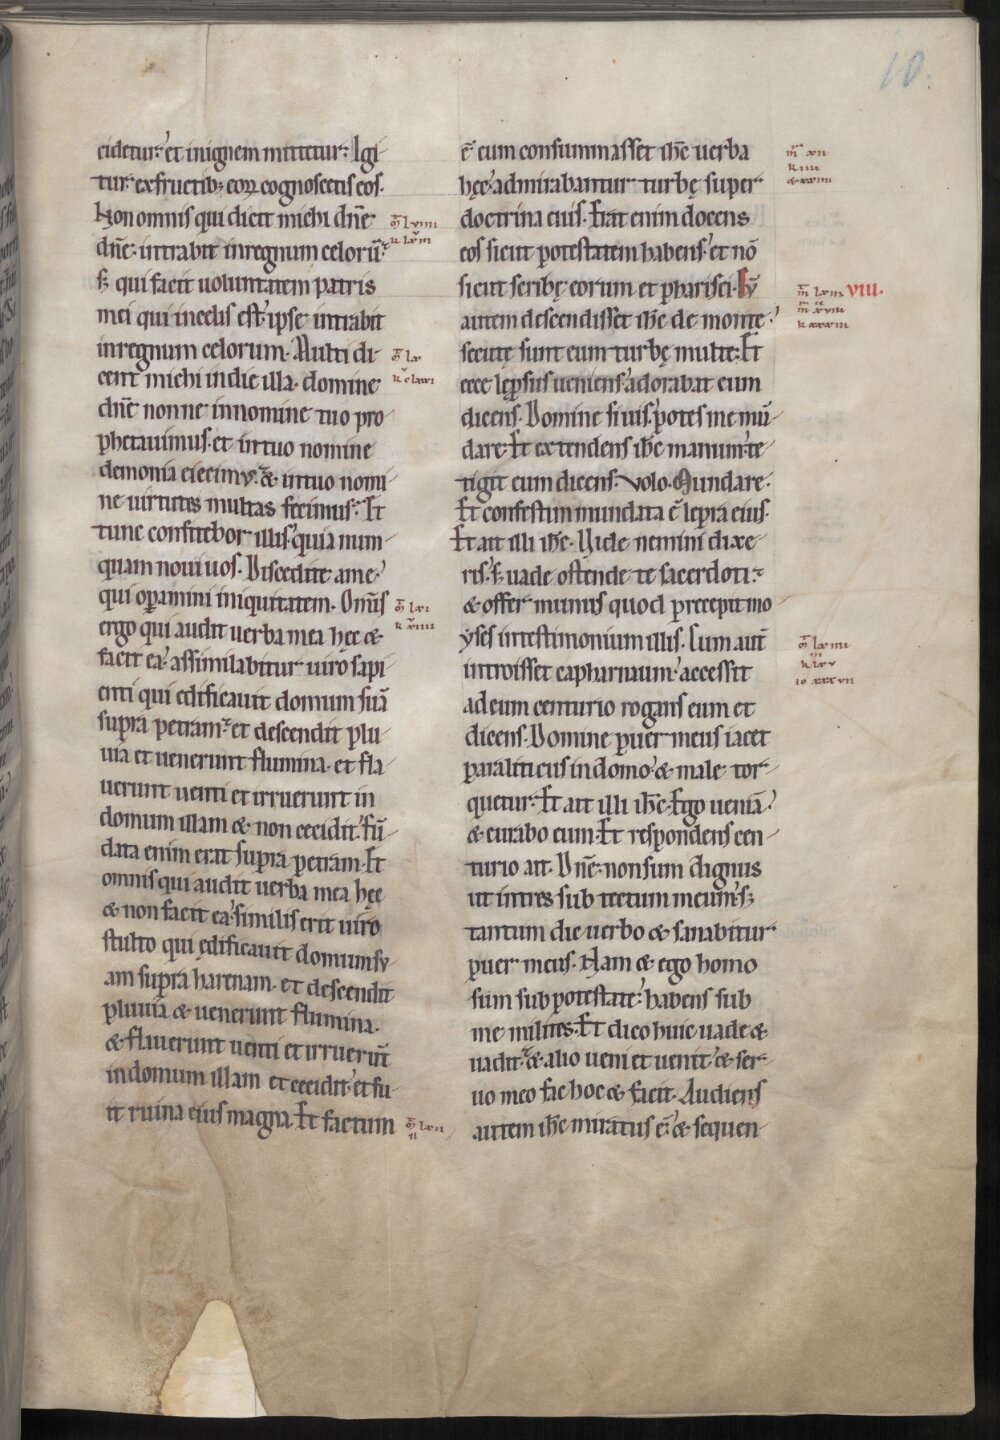 10.
cidetur: et in ignem mittetur: Igi
tur ex fructib; eoꝝ cognoscetis eos.
Non omnis qui dicit michi dn̄e
dn̄e. intrabit in regnum celorū.
s; qui facit uoluntatem patris
mei qui in celis est: ipse intrabit
in regnum celorum. Multi di
cent michi in die illa. domine
dn̄e nonne in nomine tuo pro
phetauimus. et in tuo nomine
demonia eiecimꝰ. & in tuo nomi
ne uirtutes multas fecimus. Et
tunc confitebor illis quia num
quam noui uos. Discedite a me.
qui opamini iniquitatem. Om̄is
ergo qui audit uerba mea hęc &
facit ea. assimilabitur uiro sapi
enti qui edificauit domum suā
supra petram. et descendit plu
uia et uenerunt flumina. et fla
uerunt uenti et irruerunt in
domum illam & non cecidit. fū
data enim erat supra petram. Et
omnis qui audit uerba mea hęc
& non facit ea. similis erit uiro
stulto qui ędificauit domum su
am supra harenam. et descendit
pluuia & uenerunt flumina.
& flauerunt uenti et irruerūt
in domum illam et cecidit. et fu
it ruina eius magna. Et factum
ē cum consummasset ih̄c uerba
hęc. admirabantur turbę super
doctrina eius. Erat enim docens
eos sicut potestatem habens. et nō
sicut scribę eorum et pharisei. Cū
autem descendisset ih̄c de monte.
secutę sunt eum turbę multę. Et
ecce leprsus ueniens adorabat eum
dicens. Domine si uis. potes me mū
dare. Et extendens ih̄c manum. te
tigit eum dicens. Volo. Mundare.
Et confestim mundata ē lepra eius.
Et ait illi ih̄c. Vide nemini dixe
ris. s; uade ostende te sacerdoti.
& offer munus quod precepit mo
yses in testimonium illis. Cum aut̄
introisset capharnaum. accessit
ad eum centurio rogans eum et
dicens. Domine puer meus iacet
paraliticus in domo. & male tor
quetur. Et ait illi ih̄c. Ego ueniā.
& curabo eum. Et respondens cen
turio ait. Dn̄e. non sum dignus
ut intres sub tectum meum. s;
tantum dic uerbo & sanabitur
puer meus. Nam & ego homo
sum sub potestate. habens sub
me milites. Et dico huic uade &
uadit. & alio ueni et uenit. & ser
uo meo fac hoc & facit. Audiens
autem ih̄c miratus ē. & sequen
VIII.